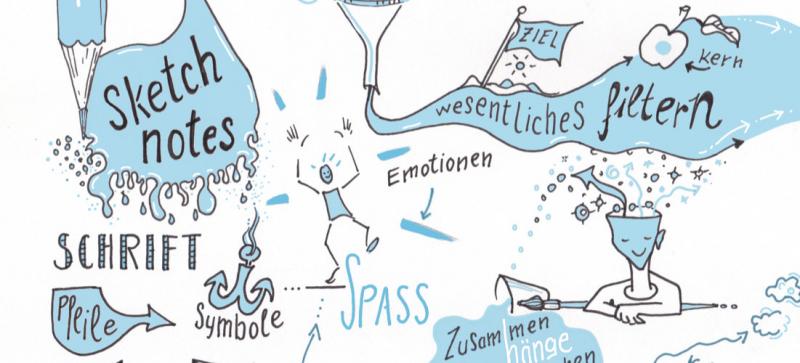 Sketch
notes
ZIEL
Kern
wesentliches filtern
Emotionen
SCHRIFT
Pfeile
Symbole
SPASS
Zusammen
hänge